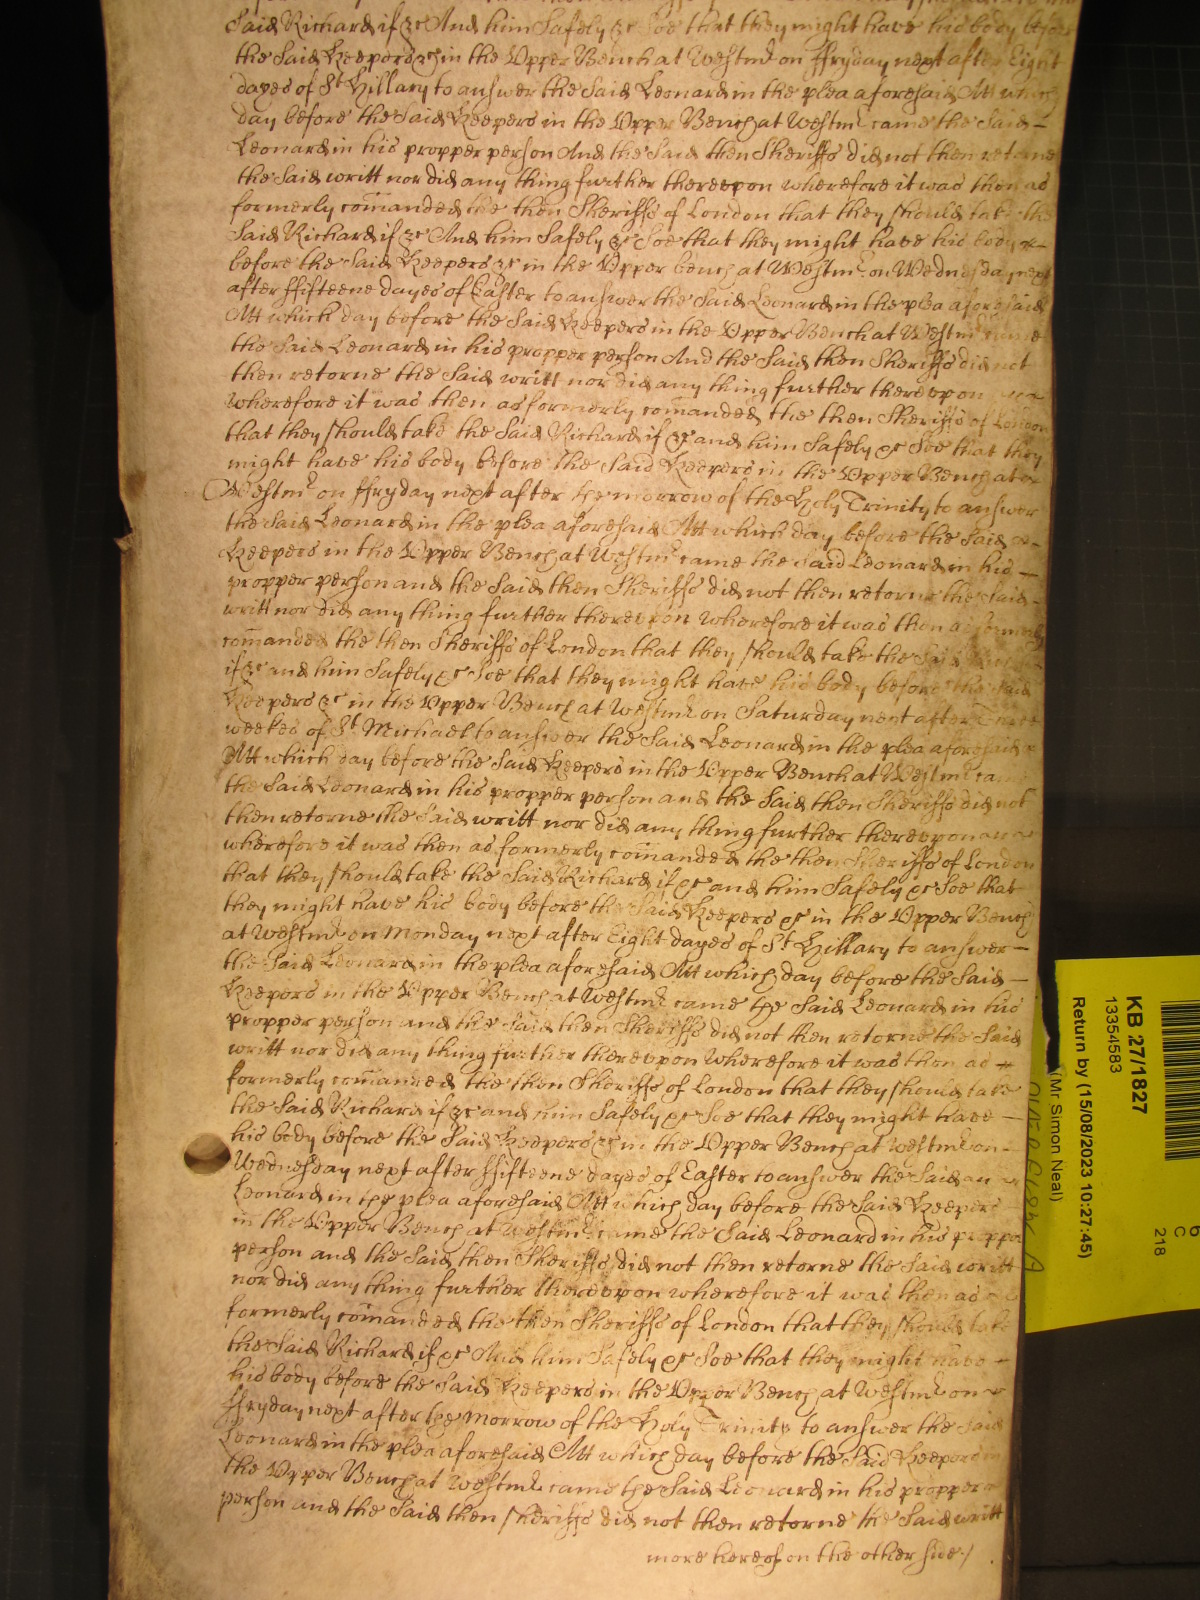 Said Richard if &c And him Safely &c Soe that they might have his body before
the Said Keepers &c in the Upper Bench at Westmr on ffryday next after Eight
dayes of St Hillary to answer the Said Leonard in the plea aforesaid Att which
day before the Said Keepers in the Upper Bench at Westmr came the Said
Leonard in his propper person And the Said then Sheriffs did not then retorne
the Said writt nor did any thing further thereupon wherefore it was then as
formerly comanded the then Sheriffs of London that they should take the
Said Richard if &c And him Safely &c Soe that they might have his body
before the Said Keepers &c in the Upper bench at Westmr on Wednesday next
after ffifteene dayes of Easter to answer the Said Leonard in the plea aforesaid
Att which day before the Said Keepers in the Upper Bench at Westmr came
the Said Leonard in his propper person And the Said then Sheriffs did not
then retorne the Said writt nor did any thing further thereupon
wherefore it was then as formerly comanded the then Sheriffs of London
that they should take the Said Richard if &c and him Safely &c Soe that they
might have his body before the Said Keepers in the Upper Bench at
Westmr on ffryday next after the morrow of the Holy Trinity to answer
the Said Leonard in the plea aforesaid Att which day before the Said
Keepers in the Upper Bench at Westmr came the Said Leonard in his
propper person and the Said then Sheriffs did not then retorne the Said
writt nor did any thing further thereupon wherefore it was then as formerly
comanded the then Sheriffs of London that they should take the Said Richard
if &c and him Safely &c Soe that they might have his body before the Said
Keepers &c in the Upper Bench at Westmr on Saturday next after Three
weekes of St Michael to answer the Said Leonard in the plea aforesaid
Att which day before the Said Keepers in the Upper Bench at Westmr came
the Said Leonard in his propper person and the Said then Sheriffs did not
then retorne the Said writt nor did any thing further thereupon
wherefore it was then as formerly comanded the then Sheriffs of London
that they should take the Said Richard if &c and him Safely &c Soe that
they might have his body before the Said Keepers &c in the Upper Bench
at Westmr on Monday next after Eight dayes of St Hillary to answer
the Said Leonard in the plea aforesaid Att which day before the Said
Keepers in the Upper Bench at Westmr came the Said Leonard in his
propper person and the Said then Sheriffs did not then retorne the Said
writt nor did any thing further thereupon wherefore it was then as
formerly comanded the then Sheriffs of London that they should take
the Said Richard if &c and him Safely &c Soe that they might have
his body before the Said Keepers &c in the Upper Bench at Westmr on
Wednesday next after ffifteene dayes of Easter to answer the Said
Leonard in the plea aforesaid Att which day before the Said Keepers
in the Upper Bench at Westmr came the Said Leonard in his propper
person and the Said then Sheriffs did not then retorne the Said writt
nor did any thing further thereupon wherefore it was then as
formerly comanded the then Sheriffs of London that they should take
the Said Richard if &c And him Safely &c Soe that they might have
his body before the Said Keepers in the Upper Bench at Westmr on
ffryday next after the morrow of the Holy Trinity to answer the Said
Leonard in the plea aforesaid Att which day before the Said Keepers in
the Upper Bench at Westmr came the Said Leonard in his propper
person and the Said then Sheriffs did not then retorne the Said writt
more hereof on the other side /
KB 27/1827
13354583
Return by (15/08/2023 10:27:45)
(Mr Simon Neal)
6
C
218